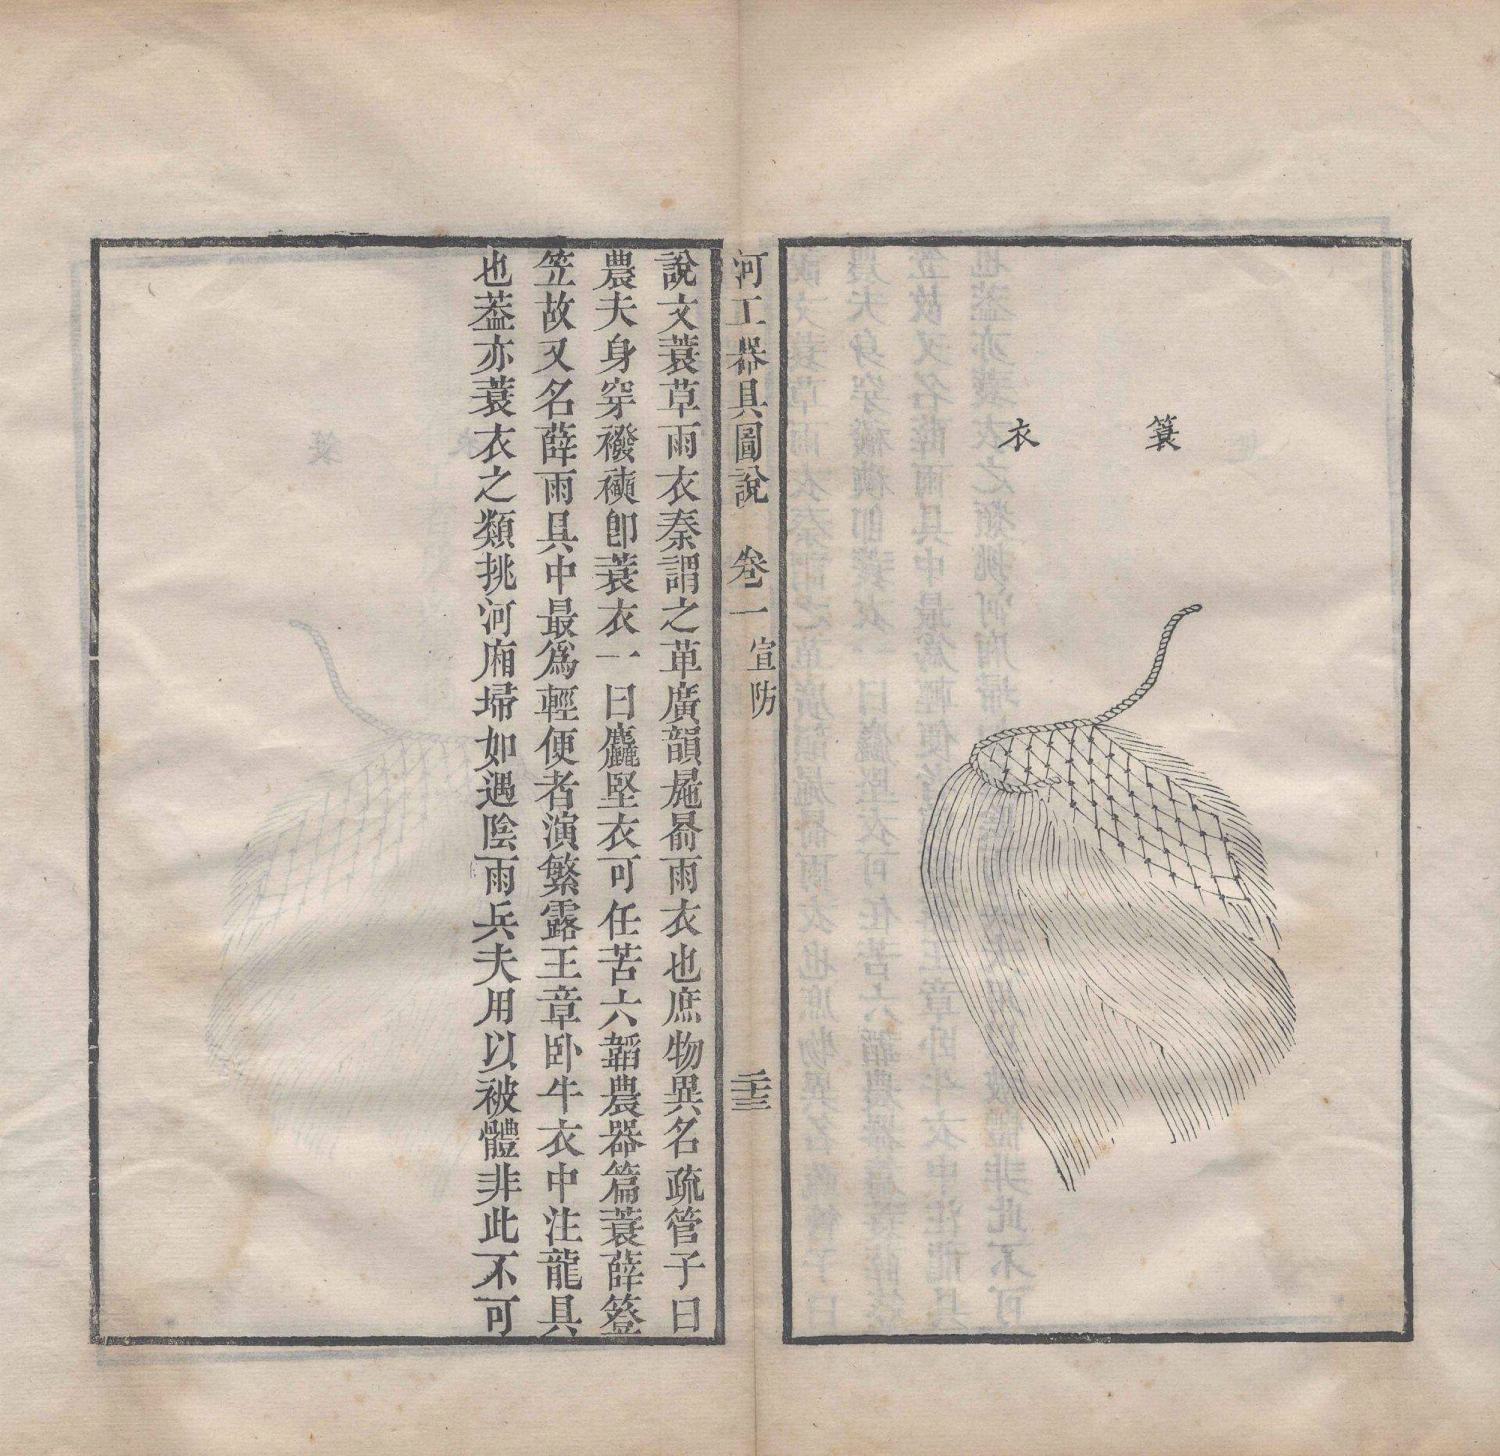 簑衣
河工器具圖說 卷一 宣防 二十三
說文蓑草雨衣秦謂之萆廣韻𡲕𡲰雨衣也庶物異名疏管子曰
農夫身穿襏襫卽蓑衣一曰麤堅衣可任苦六韜農器篇蓑薛簦
笠故又名薛雨具中最爲輕便者演繁露王章卧牛衣中注龍具
也葢亦蓑衣之類挑河廂埽如遇陰雨兵夫用以被體非此不可